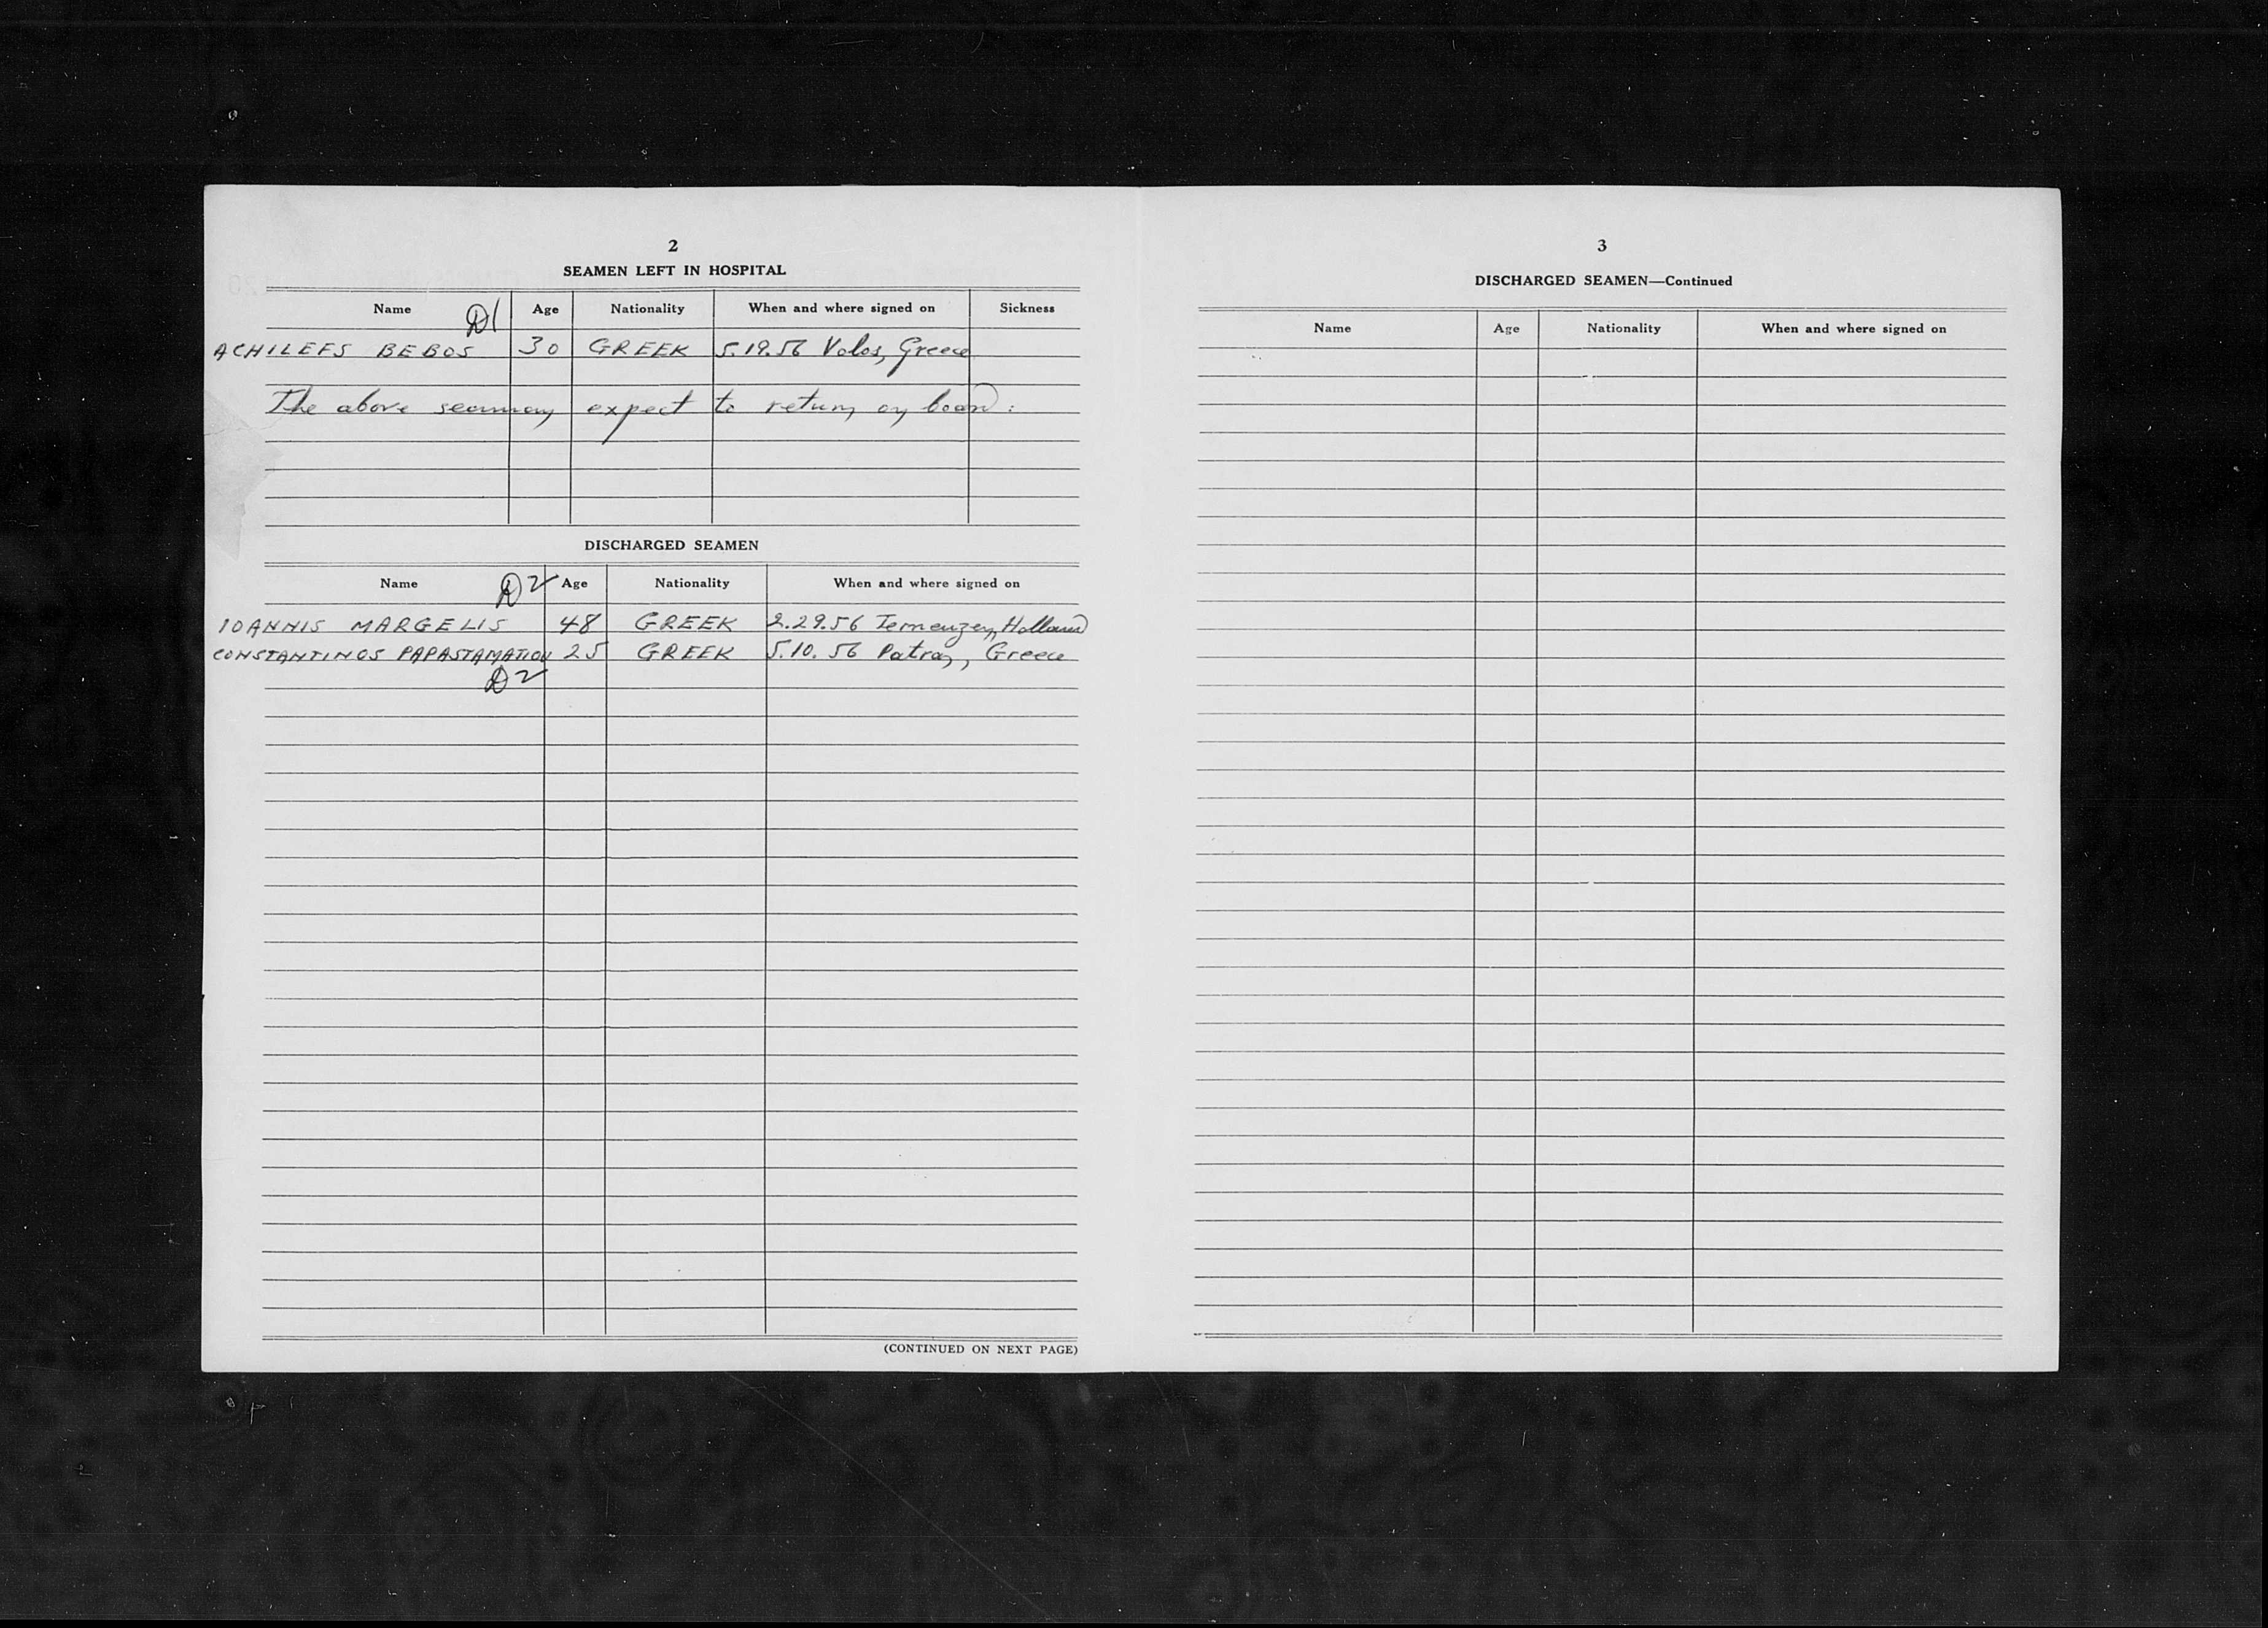 2
SEAMEN LEFT IN HOSPITAL
Name D1 Age Nationality When and where signed on Sickness
ACHILEFS BEBOS 30 GREEK 5.19.56 Volos, Greece
The above seaman expect to return on board.
DISCHARGED SEAMEN
Name D2 Age Nationality When and where signed on
IOANNIS MARGELIS 48 GREEK 2.29.56 Terneuzen, Holland
CONSTANTINOS PAPASTAMATIOU 25 GREEK 5.10.56 Patras, Greece
D2
(CONTINUED ON NEXT PAGE)
3
DISCHARGED SEAMEN—Continued
Name Age Nationality When and where signed on